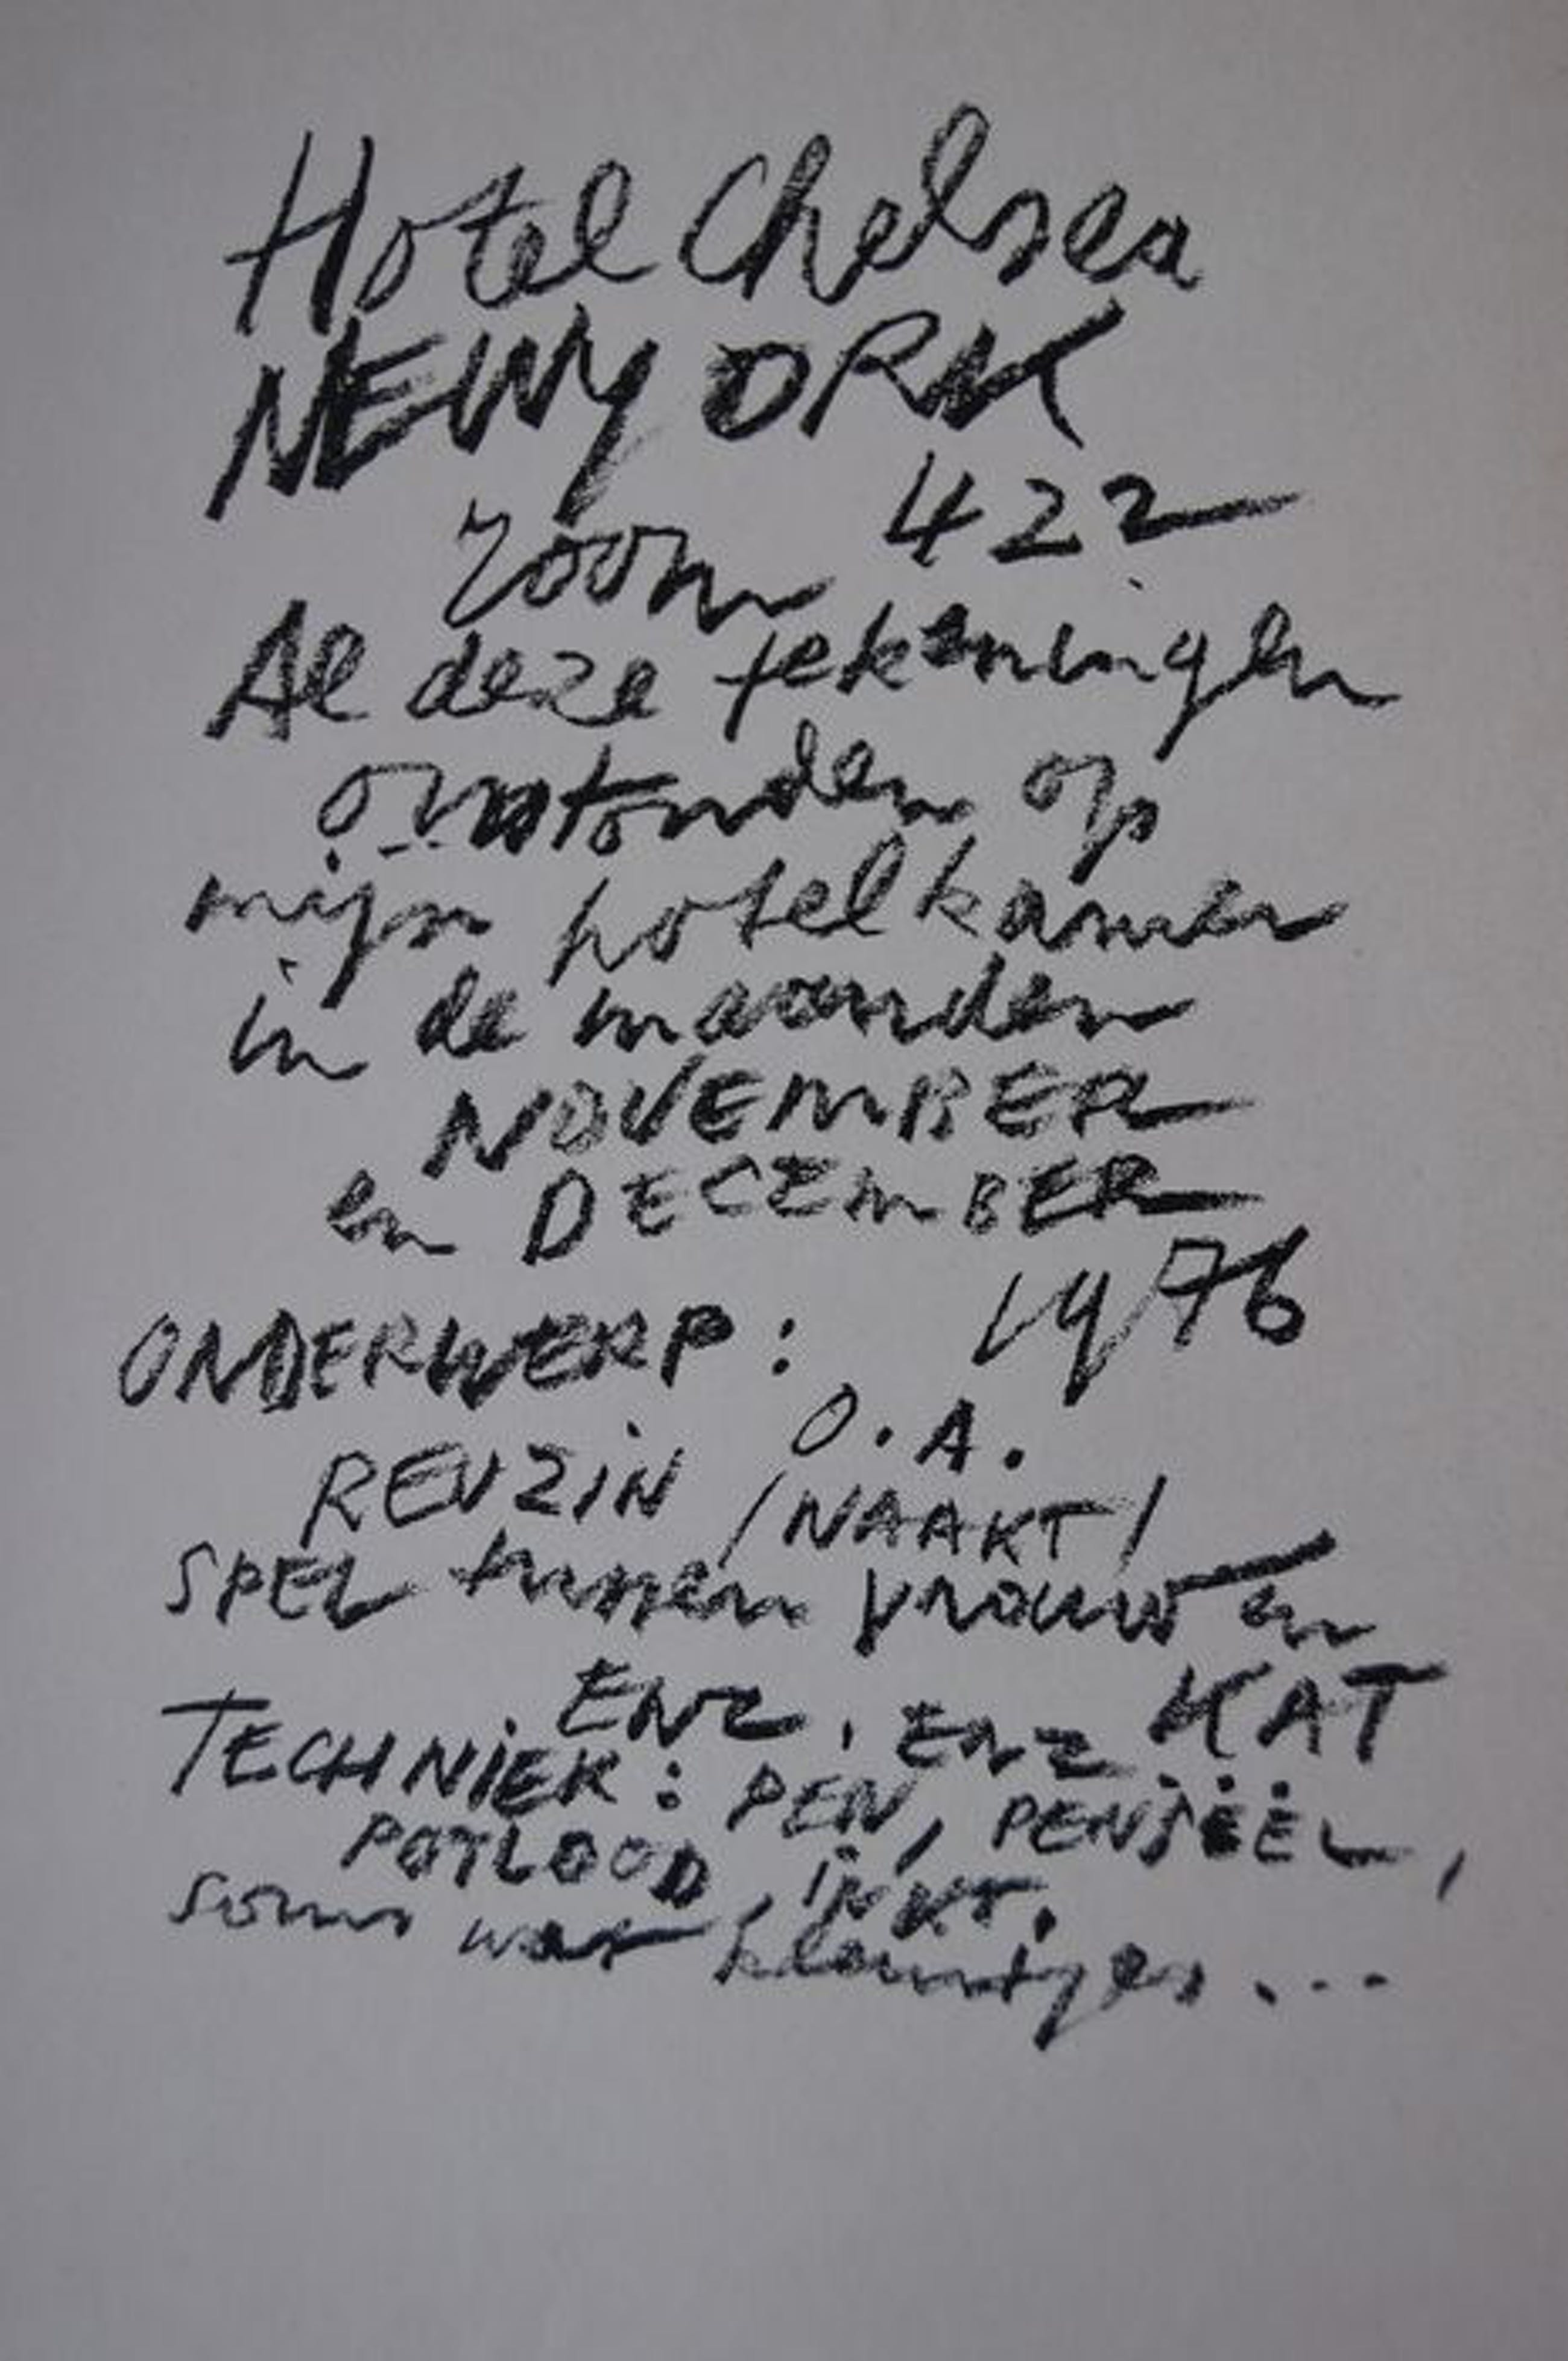 Hotel Chelsea
NEWYORK
room 422
Al deze tekeningen
ontstonden op
mijn hotelkamer
in de maanden
NOVEMBER
en DECEMBER
1976
ONDERWERP:
O.A.
REUZIN /NAAKT/
SPEL tussen vrouw en
KAT
ENZ. ENZ
TECHNIEK: PEN, PENSEEL,
POTLOOD, INKT.
soms wat kleurtjes...